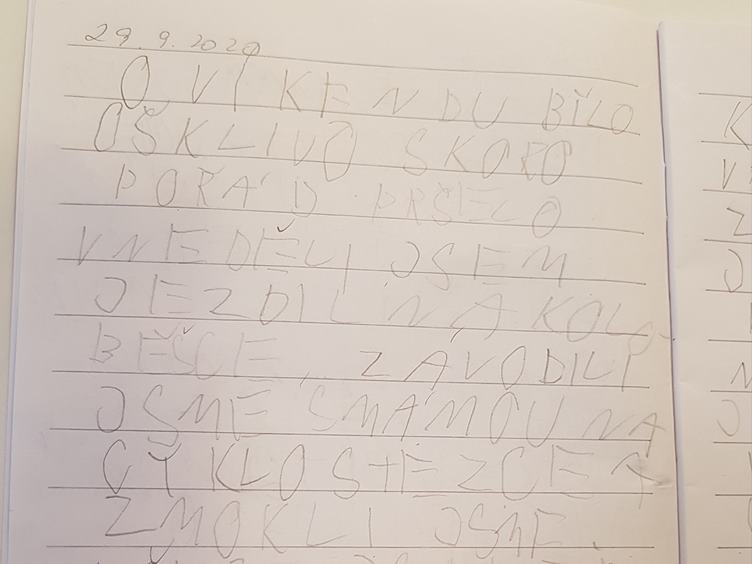 29.9.2020
O VÍKENDU BÍLO
OŠKLIVO SKORO
POŘÁD PRŠELO
VNEDĚLI JSEM
JEZDIL NA KOLO-
BĚŠCE. ZÁVODILI
JSME SMÁMOU NA
CYKLOSTEZCE A
ZMOKLI JSME.